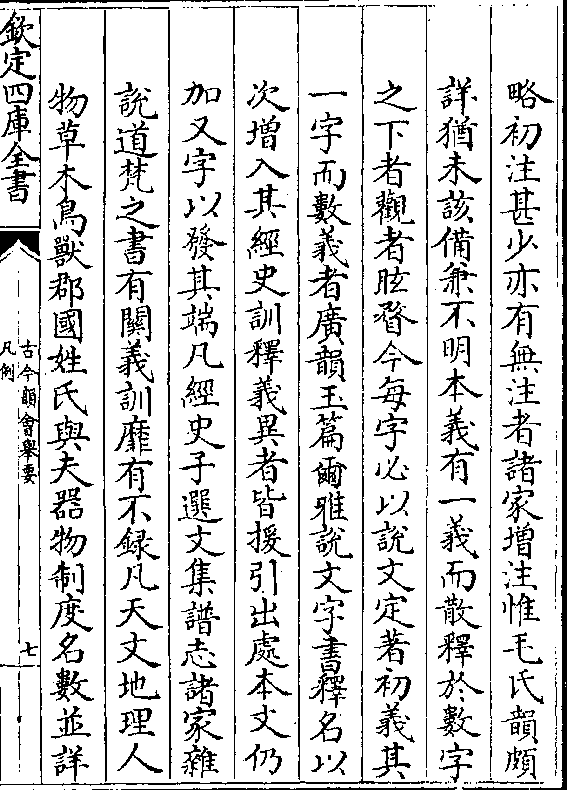 略初注甚少亦有無注者諸家增注惟毛氏韻頗
詳猶未該備兼不明本義有一義而散釋於數字
之下者觀者眩瞀今每字必以說文定著初義其
一字而數義者廣韻玉篇爾雅說文字書釋名以
次增入其經史訓釋義異者皆援引出處本文仍
加又字以發其端凡經史子選文集譜志諸家雜
說道梵之書有關義訓靡有不録凡天文地理人
物草木鳥獸郡國姓氏與夫器物制度名數並詳
欽定四庫全書
古今韻會舉要
凡例
七